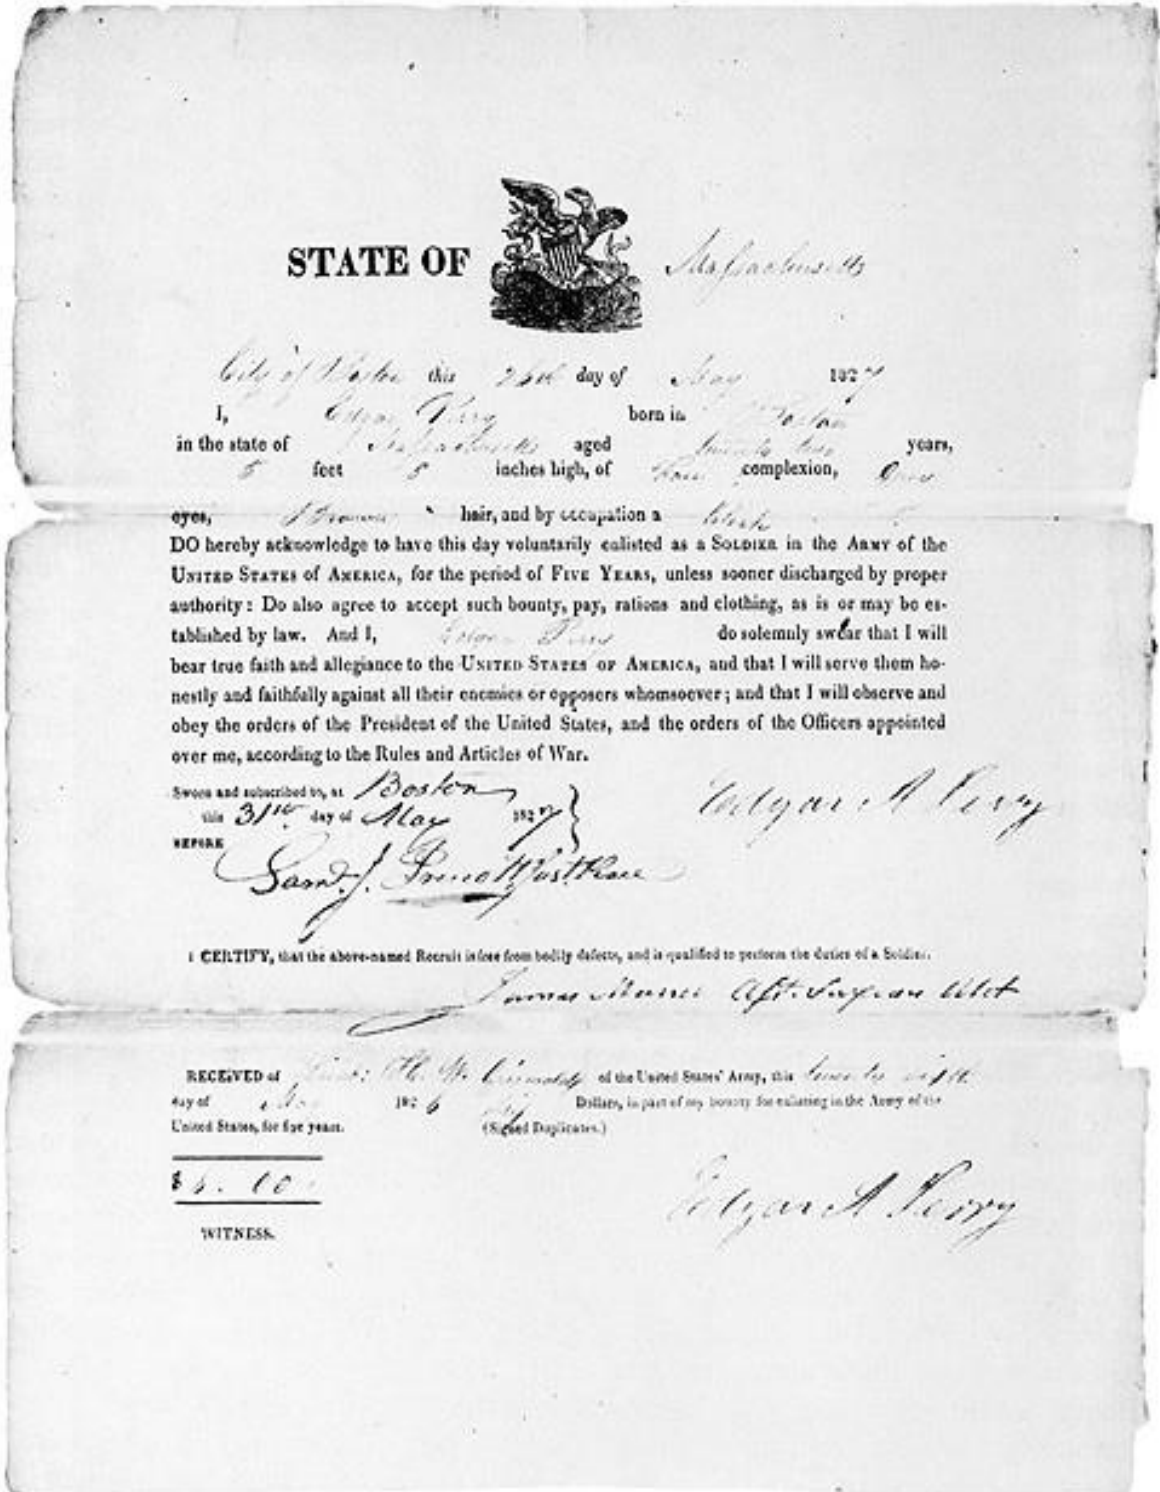 STATE OF Massachusetts
City of Boston this 26th day of May 1827
I, Edgar Perry born in Boston
in the state of Massachusetts aged twenty two years,
5 feet 8 inches high, of Fair complexion, Grey
eyes, Brown hair, and by occupation a Clerk
DO hereby acknowledge to have this day voluntarily enlisted as a SOLDIER in the ARMY of the
UNITED STATES of AMERICA, for the period of FIVE YEARS, unless sooner discharged by proper
authority: Do also agree to accept such bounty, pay, rations and clothing, as is or may be es-
tablished by law. And I, Edgar Perry do solemnly swear that I will
bear true faith and allegiance to the UNITED STATES OF AMERICA, and that I will serve them ho-
nestly and faithfully against all their enemies or opposers whomsoever; and that I will observe and
obey the orders of the President of the United States, and the orders of the Officers appointed
over me, according to the Rules and Articles of War.
Sworn and subscribed to, at Boston
this 31st day of May 1827
Edgar A Perry
BEFORE
Saml. J.
I CERTIFY, that the above-named Recruit is free from bodily defects, and is qualified to perform the duties of a Soldier.
James
RECEIVED of Lieut: W. Griswold of the United States' Army, this twenty sixth
day of May 1826 Dollars, in part of my bounty for enlisting in the Army of the
United States, for five years. (Signed Duplicates.)
Edgar A Perry
WITNESS.